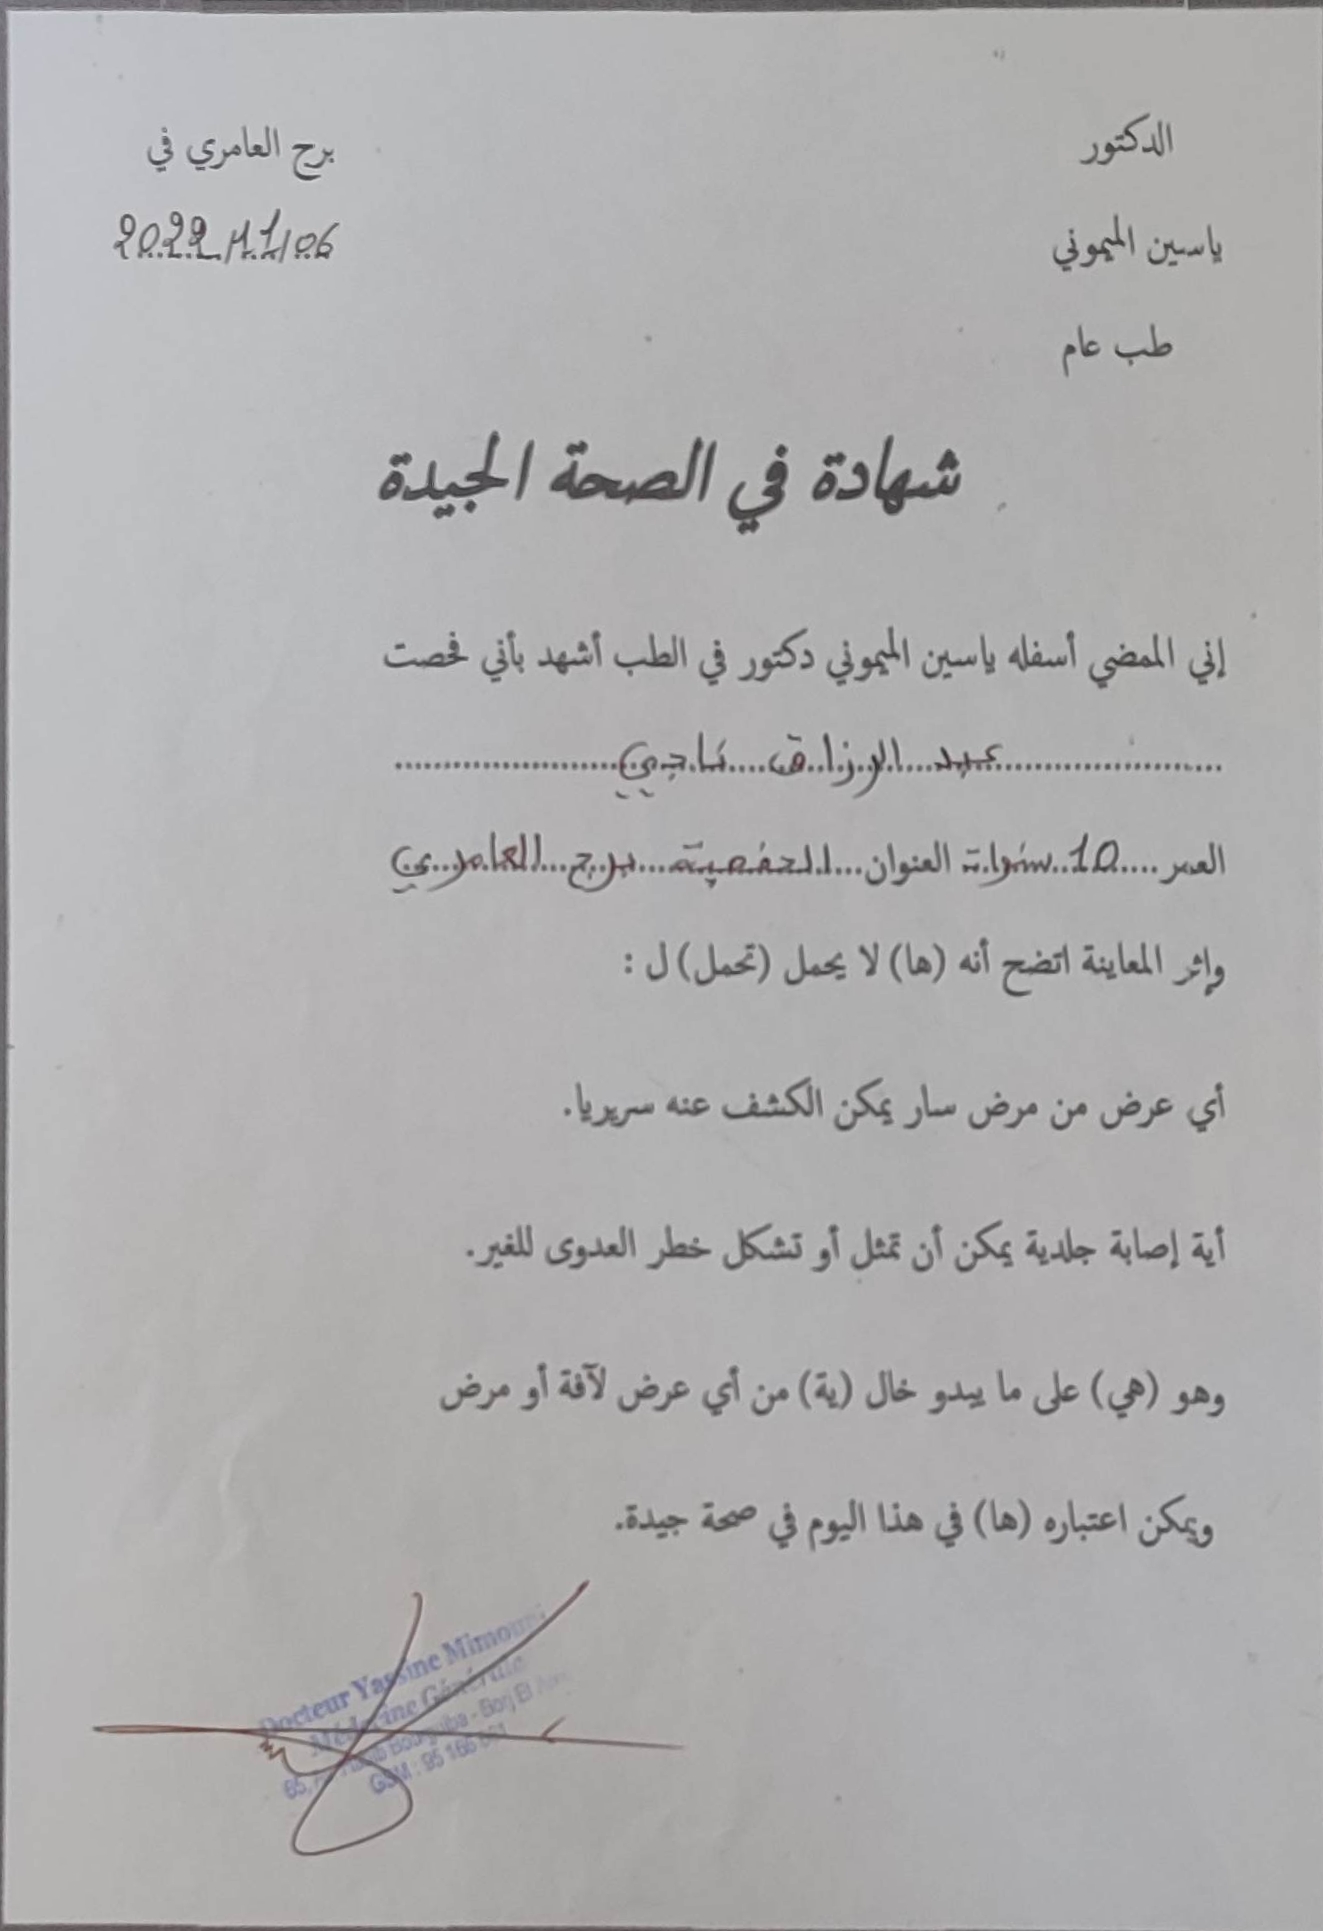 الدكتور
برج العامري في
ياسين الميموني
2022/11/06
طب عام
شهادة في الصحة الجيدة
إني الممضي أسفله ياسين الميموني دكتور في الطب أشهد بأني فحصت
عبد الرزاق ناجي
العمر 10 سنوات العنوان الحفصية برج العامري
وإثر المعاينة اتضح أنه (ها) لا يحمل (تحمل) ل :
أي عرض من مرض سار يمكن الكشف عنه سريريا.
أية إصابة جلدية يمكن أن تمثل أو تشكل خطر العدوى للغير.
وهو (هي) على ما يبدو خال (ية) من أي عرض لآفة أو مرض
ويمكن اعتباره (ها) في هذا اليوم في صحة جيدة.
Docteur Yassine Mimouni
Médecine Générale
65, Habib Bourguiba - Borj El
GSM : 95 166